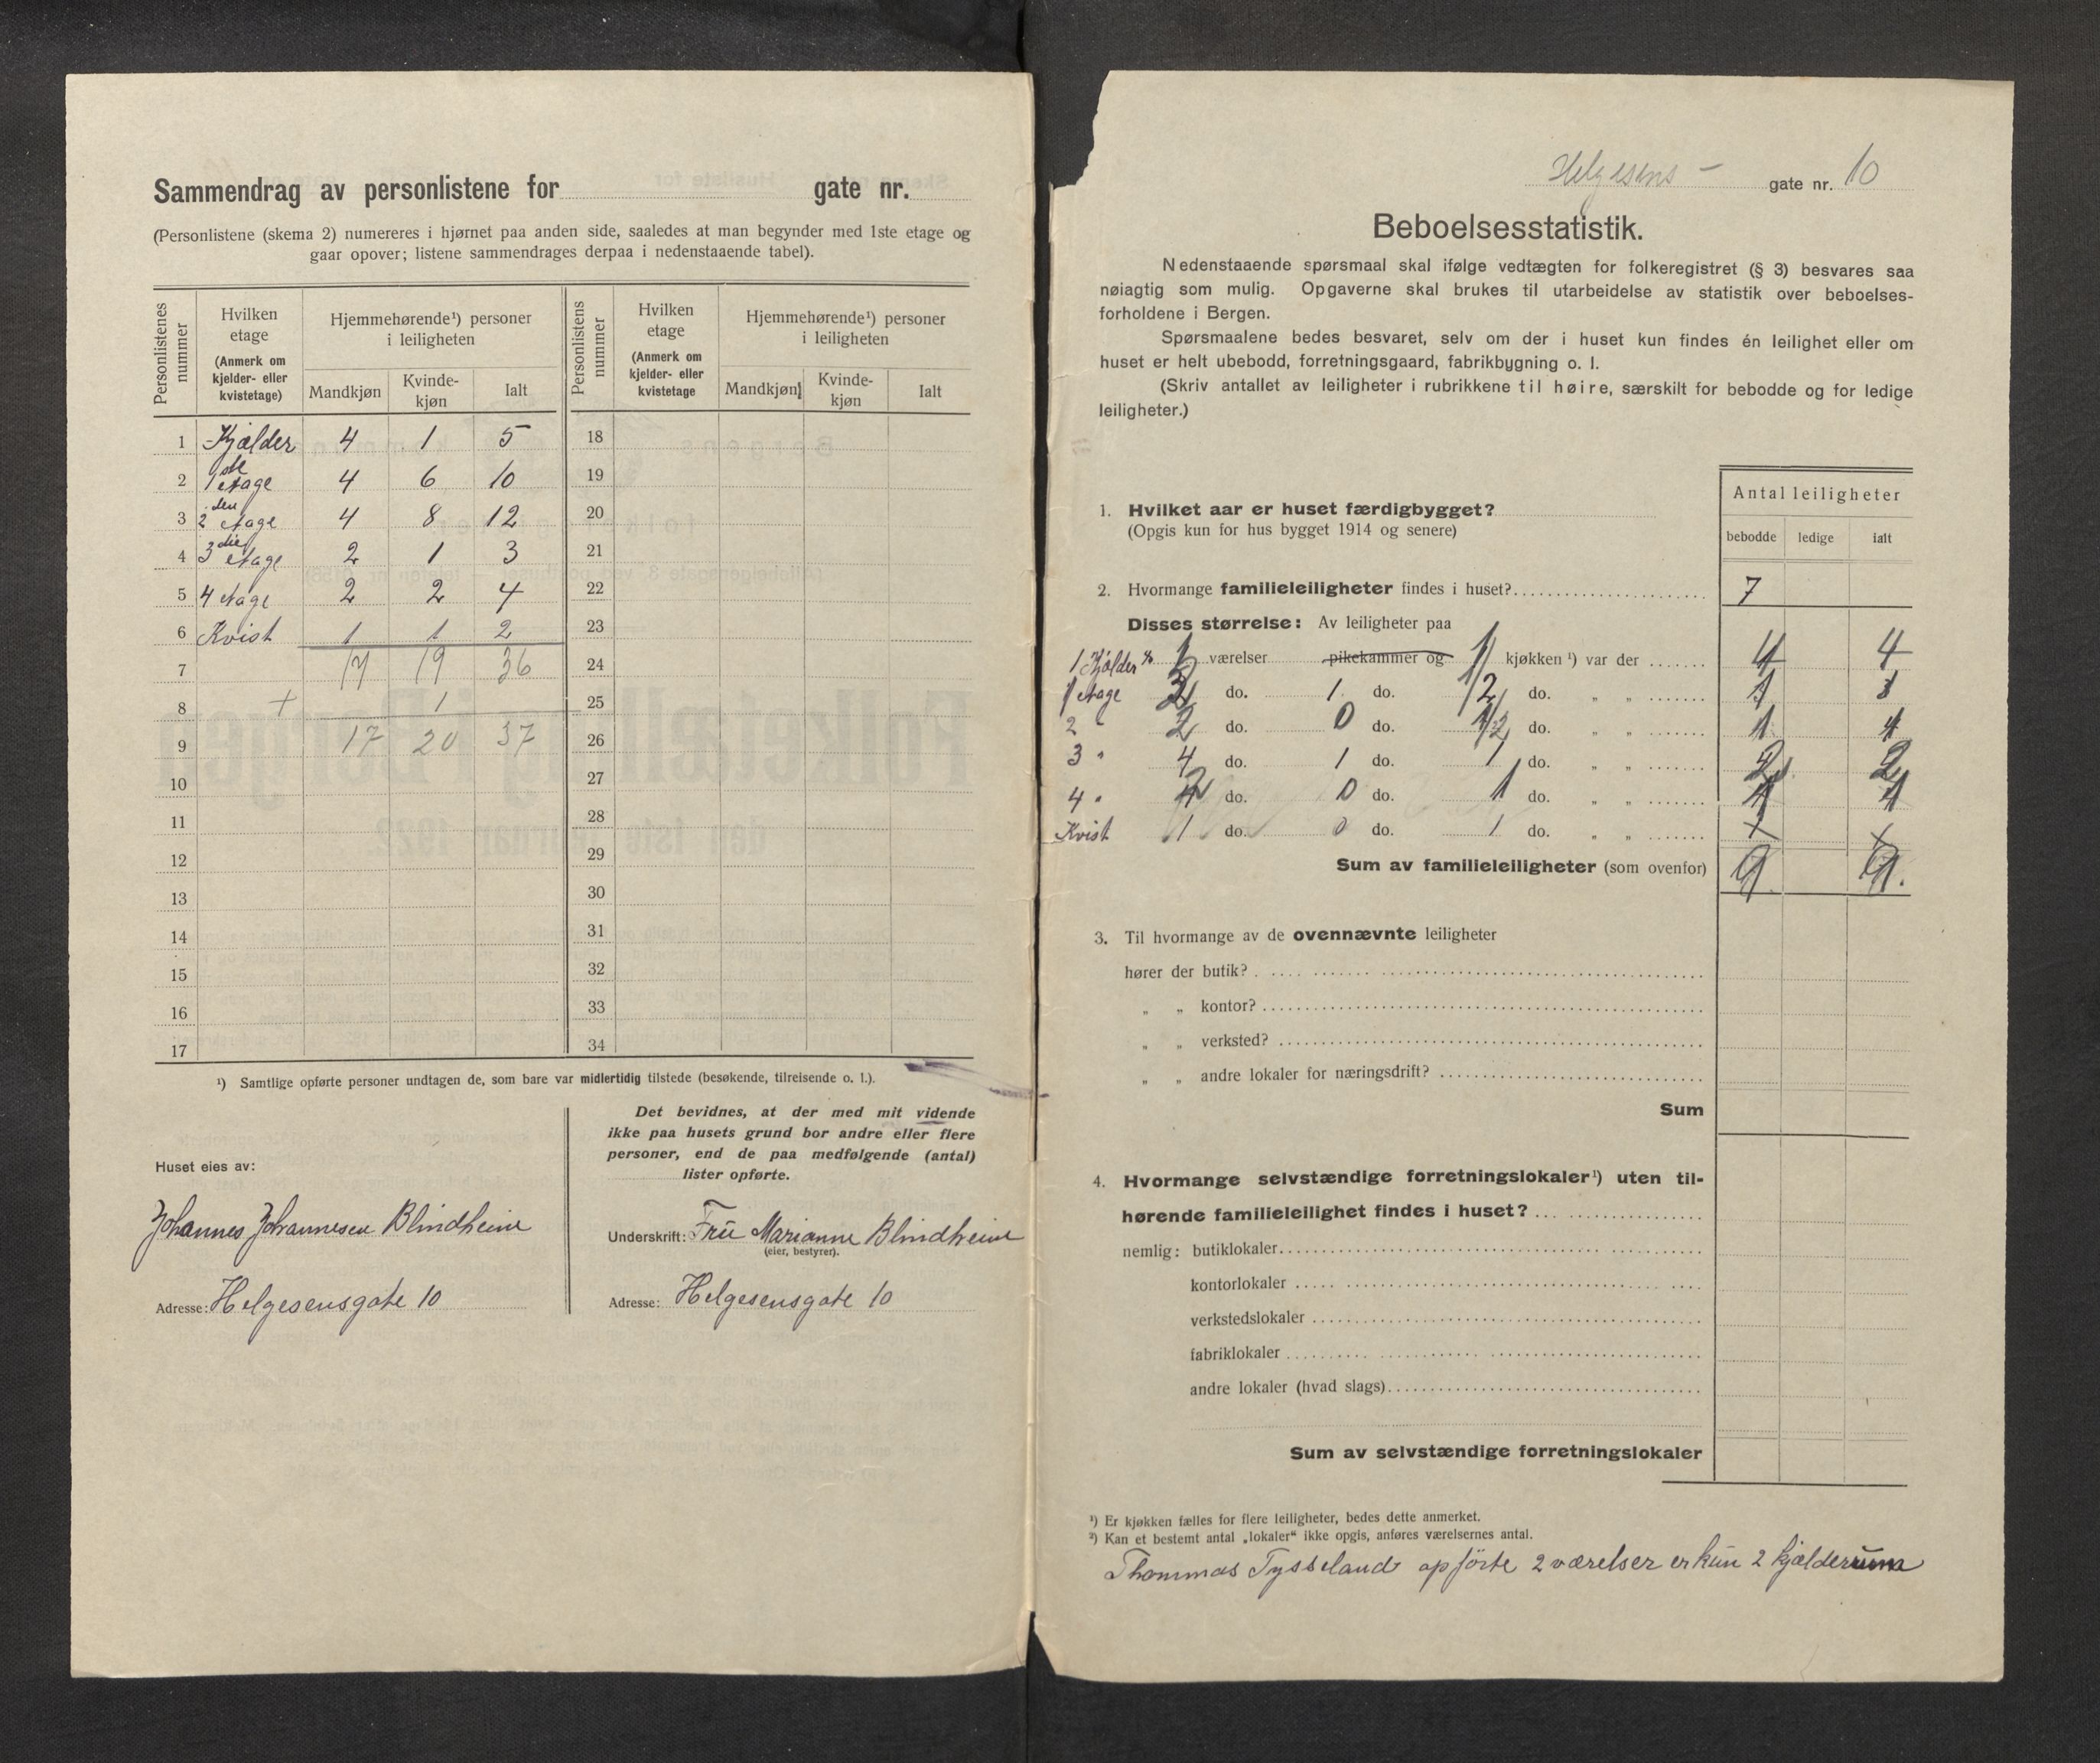 Sammendrag av personlistene for gate nr.
(Personlistene (skema 2) numereres i hjørnet paa anden side, saaledes at man begynder med 1ste etage og
gaar opover; listene sammendrages derpaa i nedenstaaende tabel).
Personlistenes nummer
Hvilken etage (Anmerk om kjelder- eller kvistetage)
Hjemmehørende¹) personer i leiligheten
Mandkjøn Kvinde-kjøn Ialt
Personlistens nummer
Hvilken etage (Anmerk om kjelder- eller kvistetage
Hjemmehørende¹) personer i leiligheten
Mandkjøn Kvinde-kjøn Ialt
1 Kjælder 4 1 5 18
2 1ste etage 4 6 10 19
3 2den etage 4 8 12 20
4 3die etage 2 1 3 21
5 4 etage 2 2 4 22
6 Kvist 1 1 2 23
7 17 19 36 24
8 + 1 25
9 17 20 37 26
10 27
11 28
12 29
13 30
14 31
15 32
16 33
17 34
¹) Samtlige opførte personer undtagen de, som bare var midlertidig tilstede (besøkende, tilreisende o. l.).
Huset eies av:
Johannes Johannesen Blindheim
Adresse: Helgesensgate 10
Det bevidnes, at der med mit vidende
ikke paa husets grund bor andre eller flere
personer, end de paa medfølgende (antal)
lister opførte.
Underskrift: Frü Marianne Blindheim
(eier, bestyrer).
Adresse: Helgesensgate 10
Helgesens - gate nr. 10
Beboelsesstatistik.
Nedenstaaende spørsmaal skal ifølge vedtægten for folkeregistret (§ 3) besvares saa
nøiagtig som mulig. Opgaverne skal brukes til utarbeidelse av statistik over beboelses-
forholdene i Bergen.
Spørsmaalene bedes besvaret, selv om der i huset kun findes én leilighet eller om
huset er helt ubebodd, forretningsgaard, fabrikbygning o. l.
(Skriv antallet av leiligheter i rubrikkene til høire, særskilt for bebodde og for ledige
leiligheter.)
Antal leiligheter
bebodde ledige ialt
1. Hvilket aar er huset færdigbygget?
(Opgis kun for hus bygget 1914 og senere)
2. Hvormange familieleiligheter findes i huset? 7
Disses størrelse: Av leiligheter paa
1 Kjælder værelser pikekammer og 1 kjøkken ¹) var der 4 4
1 etage do. 1 do. do. „ „
2 " 2 do. 0 do. do. „ „
3 " 4 do. 1 do. 1 do. „ „ 2 2
4 " do. 0 do. 1 do. „ „
Kvist 1 do. 0 do. 1 do. „ „
Sum av familieleiligheter (som ovenfor) 9 9.
3. Til hvormange av de ovennævnte leiligheter
hører der butik?
„ „ kontor?
„ „ verksted?
„ „ andre lokaler for næringsdrift?
Sum
4. Hvormange selvstændige forretningslokaler¹) uten til-
hørende familieleilighet findes i huset?
nemlig: butiklokaler
kontorlokaler
verkstedslokaler
fabriklokaler
andre lokaler (hvad slags)
Sum av selvstændige forretningslokaler
¹) Er kjøkken fælles for flere leiligheter, bedes dette anmerket.
²) Kan et bestemt antal „lokaler“ ikke opgis, anføres værelsernes antal.
Thommas Tysseland opförte 2 værelser er kün 2 kjælderüm